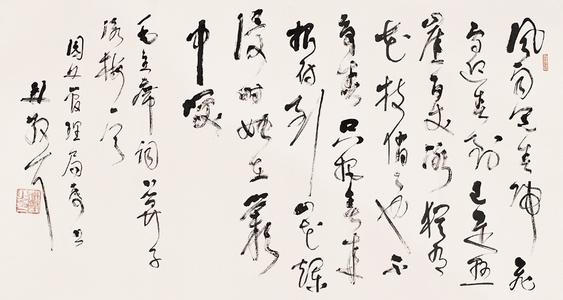 风雨送春归飞
雪迎春到已是悬
崖百丈冰犹有
花枝俏俏也不
争春只把春来
报待到山花烂
漫时她在丛
中笑
毛主席词卜算子
咏梅一首
园林管理局属书
林散耳